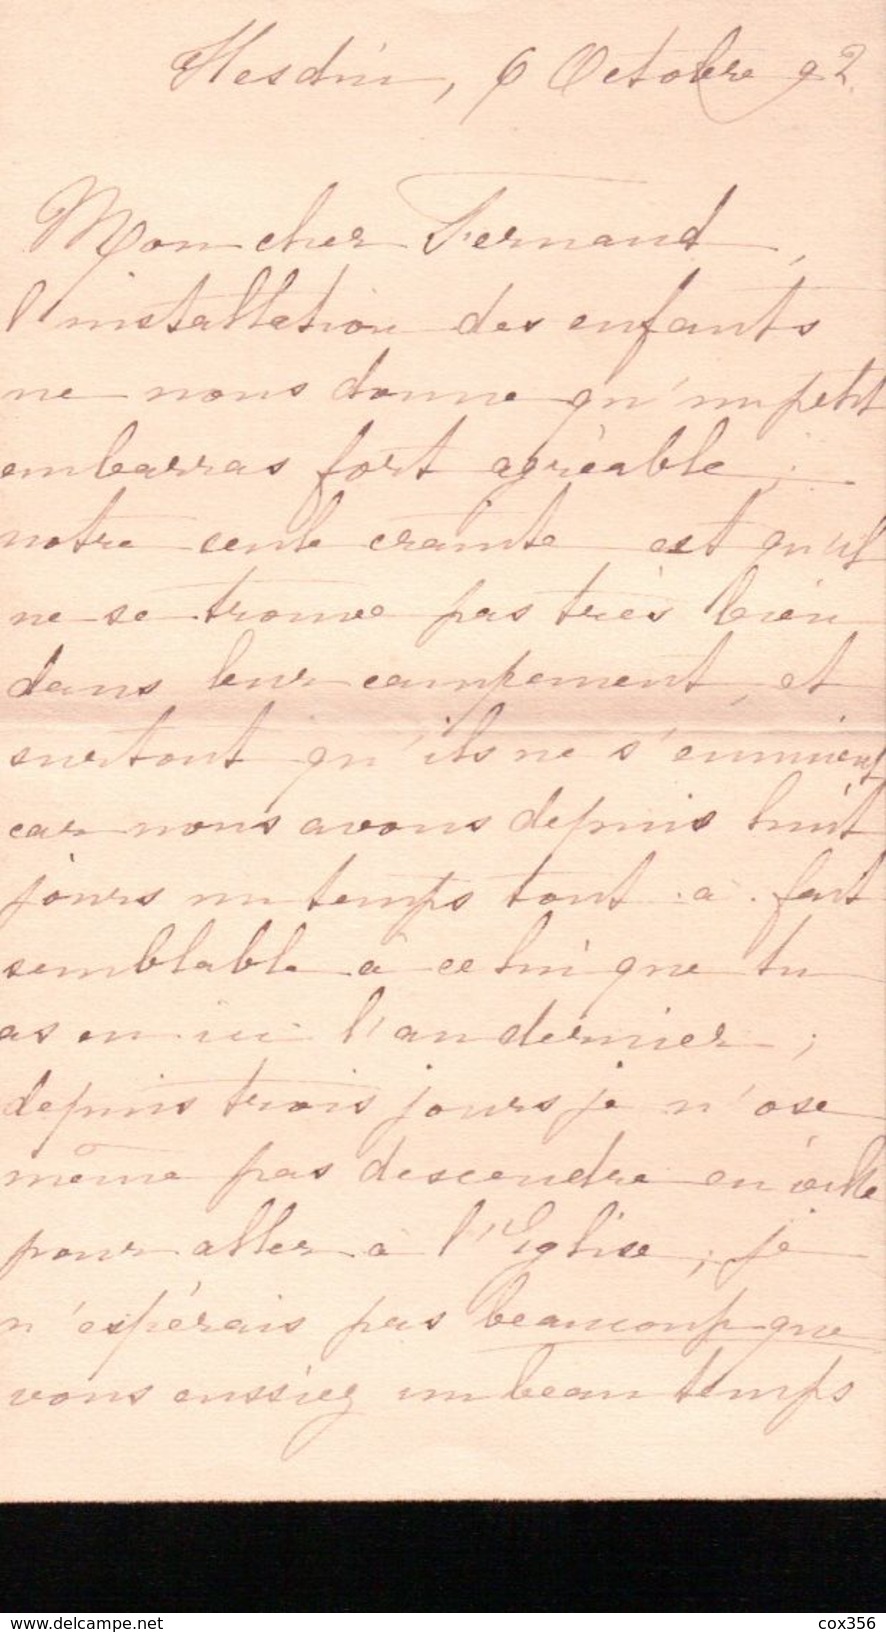 Hesdin, 6 Octobre 92.
Mon cher Fernand,
l'installation des enfants
ne nous donne qu'un petit
embarras fort agréable ;
notre seule crainte est qu'il
ne se trouve pas très bien
dans leur campement, et
surtout qu'ils ne s'ennuient
car nous avons depuis huit
jours un temps tout à fait
semblable à celui que tu
as eu ici l'an dernier ;
depuis trois jours je n'ose
même pas descendre en ville
pour aller à l'Eglise ; je
n'espérais pas beaucoup que
vous eussiez un beau temps
delcampe.net
cox356